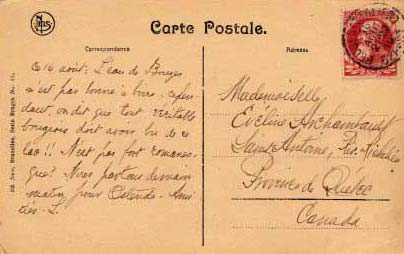 Nels
Carte Postale.
Correspondance
Adresse
Ce 16 août: L'eau de Bruges
n'est pas bonne à boire - cepen-
dant, on dit que tout véritable
brugeois doit avoir bu de ce
lac!! N'est pas fort romanes-
que? Nous partons demain
matin pour Ostende - Ami-
tiés - L.
Mademoiselle
Eveline Archambault
Saint Antoine, Riv. Richelieu
Province de Québec
Canada
Ed. Nels, Bruxelles, Serie Bruges No.